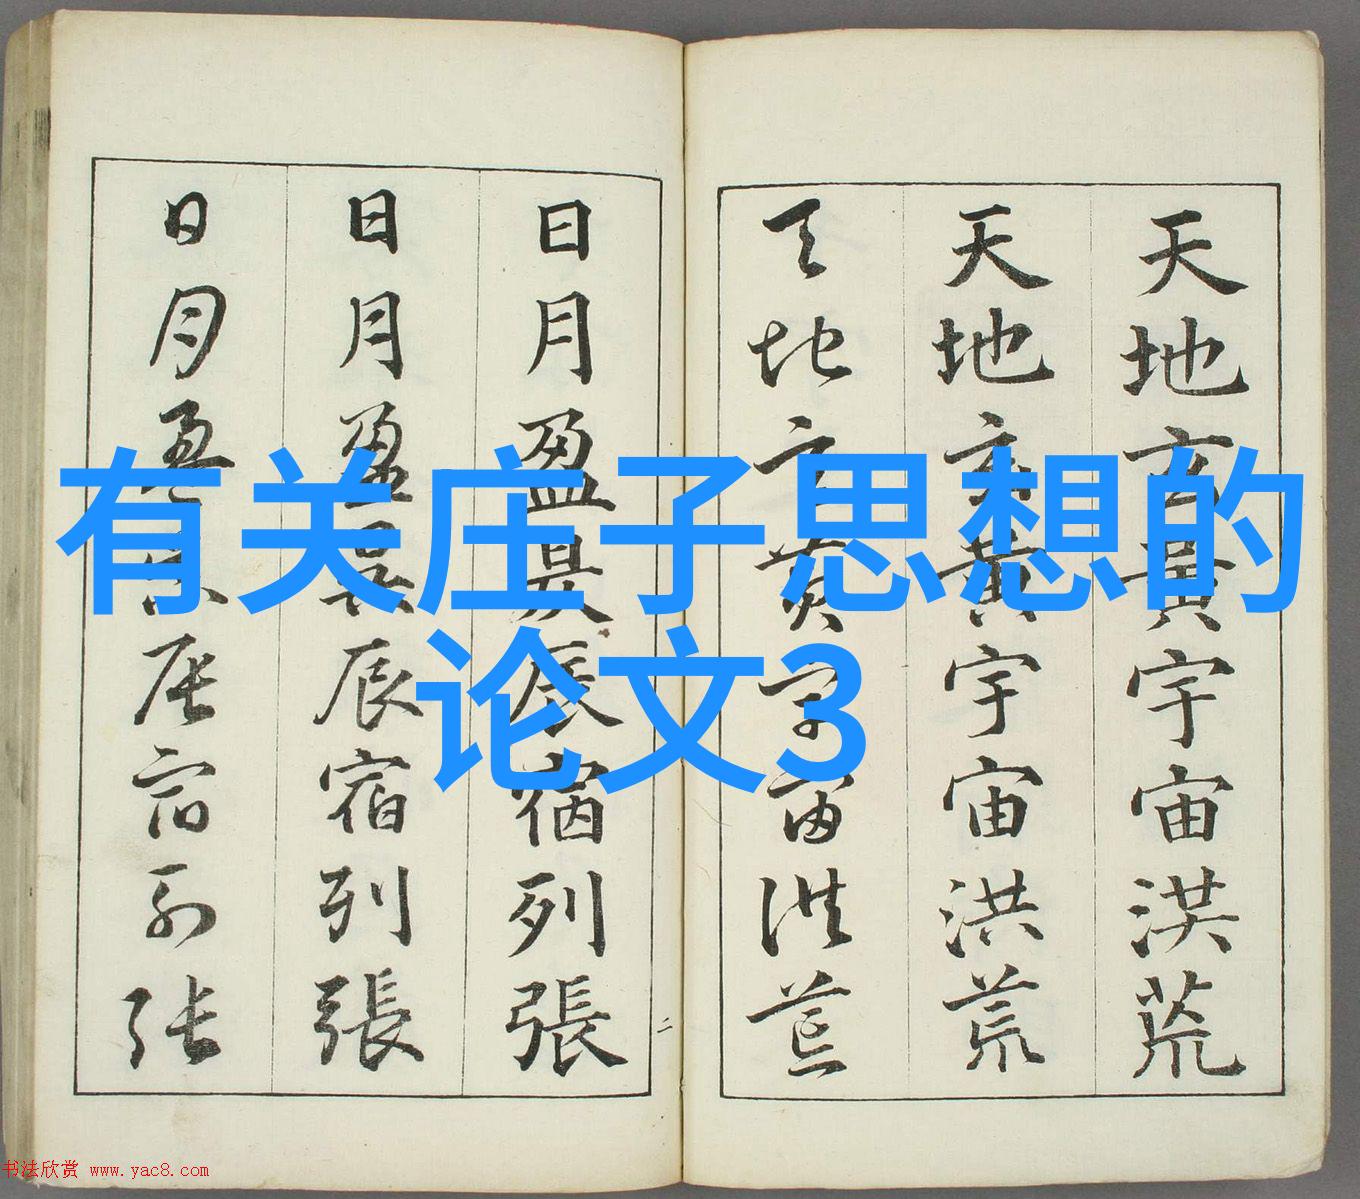 有关庄子思想的
论文3
天地玄黃宇宙洪荒
天地玄黃宇宙洪荒
天地玄黃宇宙洪荒
日月盈昃辰宿列張
日月盈昃辰宿列張
日月盈昃辰宿列張
二
书法欣赏 www.yac8.com